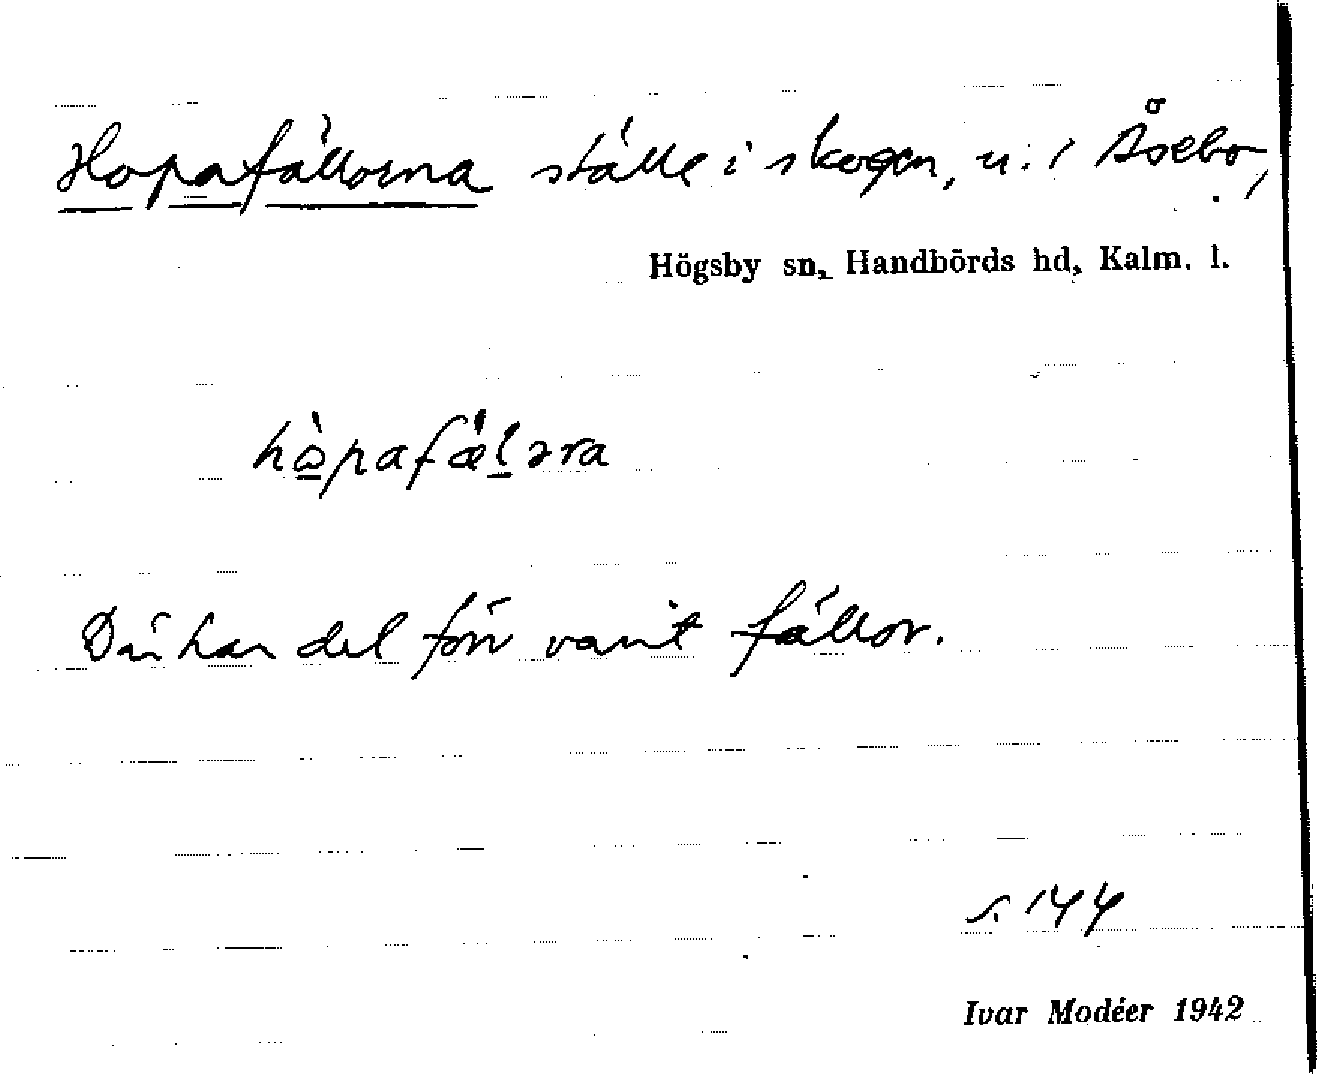 Hopafällorna ställe i skogen, u. / Åsebo,
Högsby sn, Handbörds hd, Kalm. l.
Där har det förr varit fällor.
s. 144
Ivar Modéer 1942